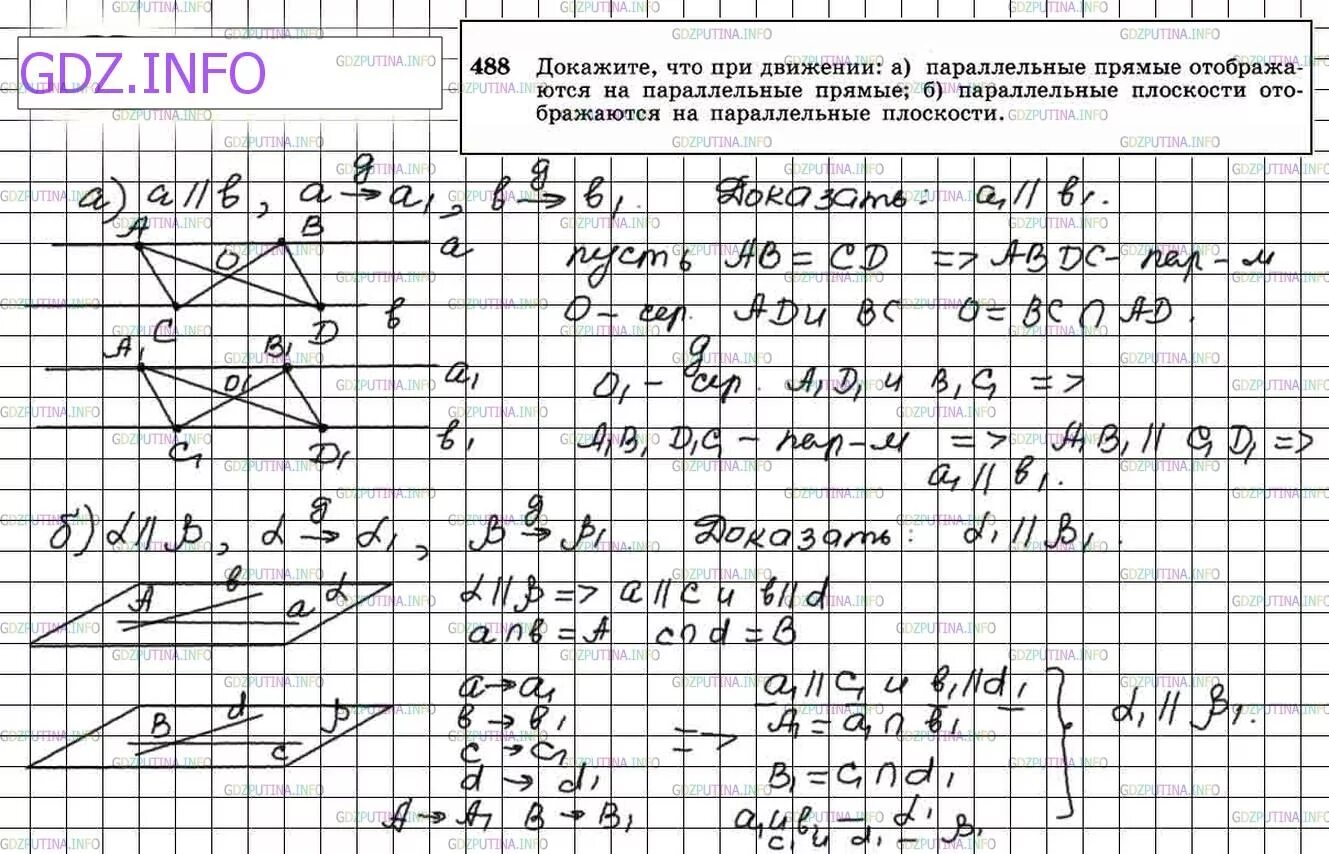 GDZ.INFO
488 Докажите, что при движении: а) параллельные прямые отобража-
ются на параллельные прямые; б) параллельные плоскости ото-
бражаются на параллельные плоскости.
а) a || в, a →д a₁, в →д в₁. Доказать: a₁ || в₁.
A B a
O
C D в
пусть AB = CD => ABDC - пар-м
O - сер. AD и BC O = BC ∩ AD.
A₁ B₁ a₁
O₁
C₁ D₁ в₁
O₁ - сер. A₁D₁ и B₁C₁ =>
A₁B₁D₁C₁ - пар-м => A₁B₁ || C₁D₁ =>
a₁ || в₁.
б) α || β, α →д α₁, β →д β₁. Доказать: α₁ || β₁.
A в a α
α || β => a || c и в || d
a ∩ в = A c ∩ d = B
B d c β
a → a₁
в → в₁
c → c₁
d → d₁
A → A₁ B → B₁
=> a₁ || c₁ и в₁ || d₁
A₁ = a₁ ∩ в₁
B₁ = c₁ ∩ d₁
a₁ и в₁ — α₁
c₁ и d₁ — β₁
α₁ || β₁.
GDZPUTINA.INFO